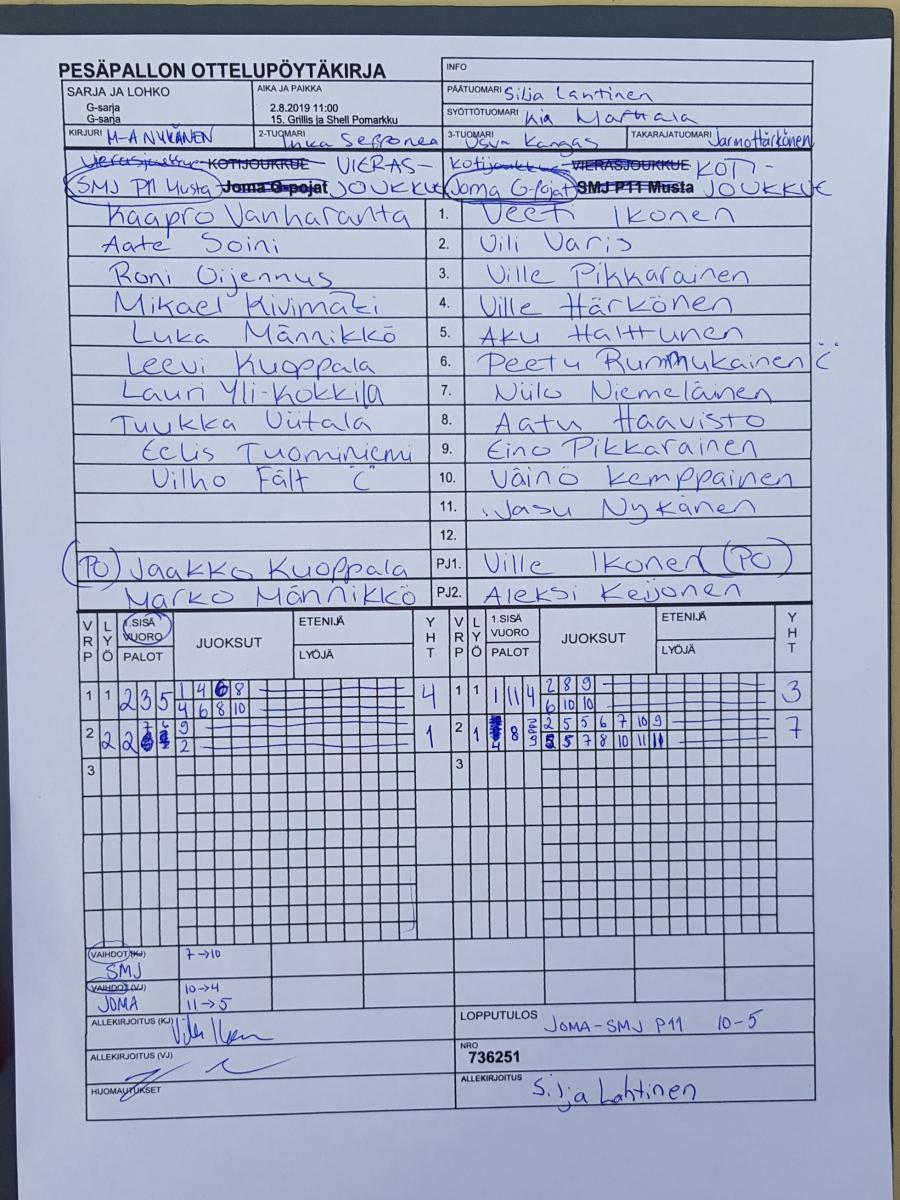 PESÄPALLON OTTELUPÖYTÄKIRJA
INFO
SARJA JA LOHKO
G-sarja
G-sarja
AIKA JA PAIKKA
2.8.2019 11:00
15. Grillis ja Shell Pomarkku
PÄÄTUOMARI Silja Lahtinen
SYÖTTÖTUOMARI
KIRJURI M-A NYKÄNEN
2-TUOMARI Inka Sepponen
3-TUOMARI Kangas
TAKARAJATUOMARI Jarmo Härkönen
Vierasjoukkue KOTIJOUKKUE VIERAS-
SMJ P11 Musta Joma G-pojat JOUKKUE
Kotijoukkue VIERASJOUKKUE KOTI-
Joma G-pojat SMJ P11 Musta JOUKKUE
Kaapro Vanharanta 1. Veeti Ikonen
Aate Soini 2. Vili Varis
Roni Oijennus 3. Ville Pikkarainen
Mikael Kivimäki 4. Ville Härkönen
Luka Männikkö 5. Aku Halttunen
Leevi Kuoppala 6. Peetu Rummukainen C
Lauri Yli-Kokkila 7. Niilo Niemeläinen
Tuukka Viitala 8. Aatu Haavisto
Eelis Tuominiemi 9. Eino Pikkarainen
Vilho Fält "C" 10. Väinö Kemppainen
11. Jasu Nykänen
12.
(PO) Jaakko Kuoppala PJ1. Ville Ikonen (PO)
Marko Männikkö PJ2. Aleksi Keijonen
VRP LYÖ 1.SISÄ VUORO PALOT JUOKSUT ETENIJÄ LYÖJÄ YHT VRP LYÖ 1.SISÄ VUORO PALOT JUOKSUT ETENIJÄ LYÖJÄ YHT
1 1 2 3 5 1 4 6 8 4 1 1 1 11 4 2 8 9 3
4 6 8 10 6 10 10
2 2 2 9 1 2 1 8 2 5 5 6 7 10 9 7
2 5 7 8 10 11 11
3 3
VAIHDOT (KJ) 7→10
SMJ
VAIHDOT (VJ) 10→4
JOMA 11→5
ALLEKIRJOITUS (KJ)
LOPPUTULOS JOMA-SMJ P11 10-5
ALLEKIRJOITUS (VJ)
NRO
736251
HUOMAUTUKSET
ALLEKIRJOITUS Silja Lahtinen